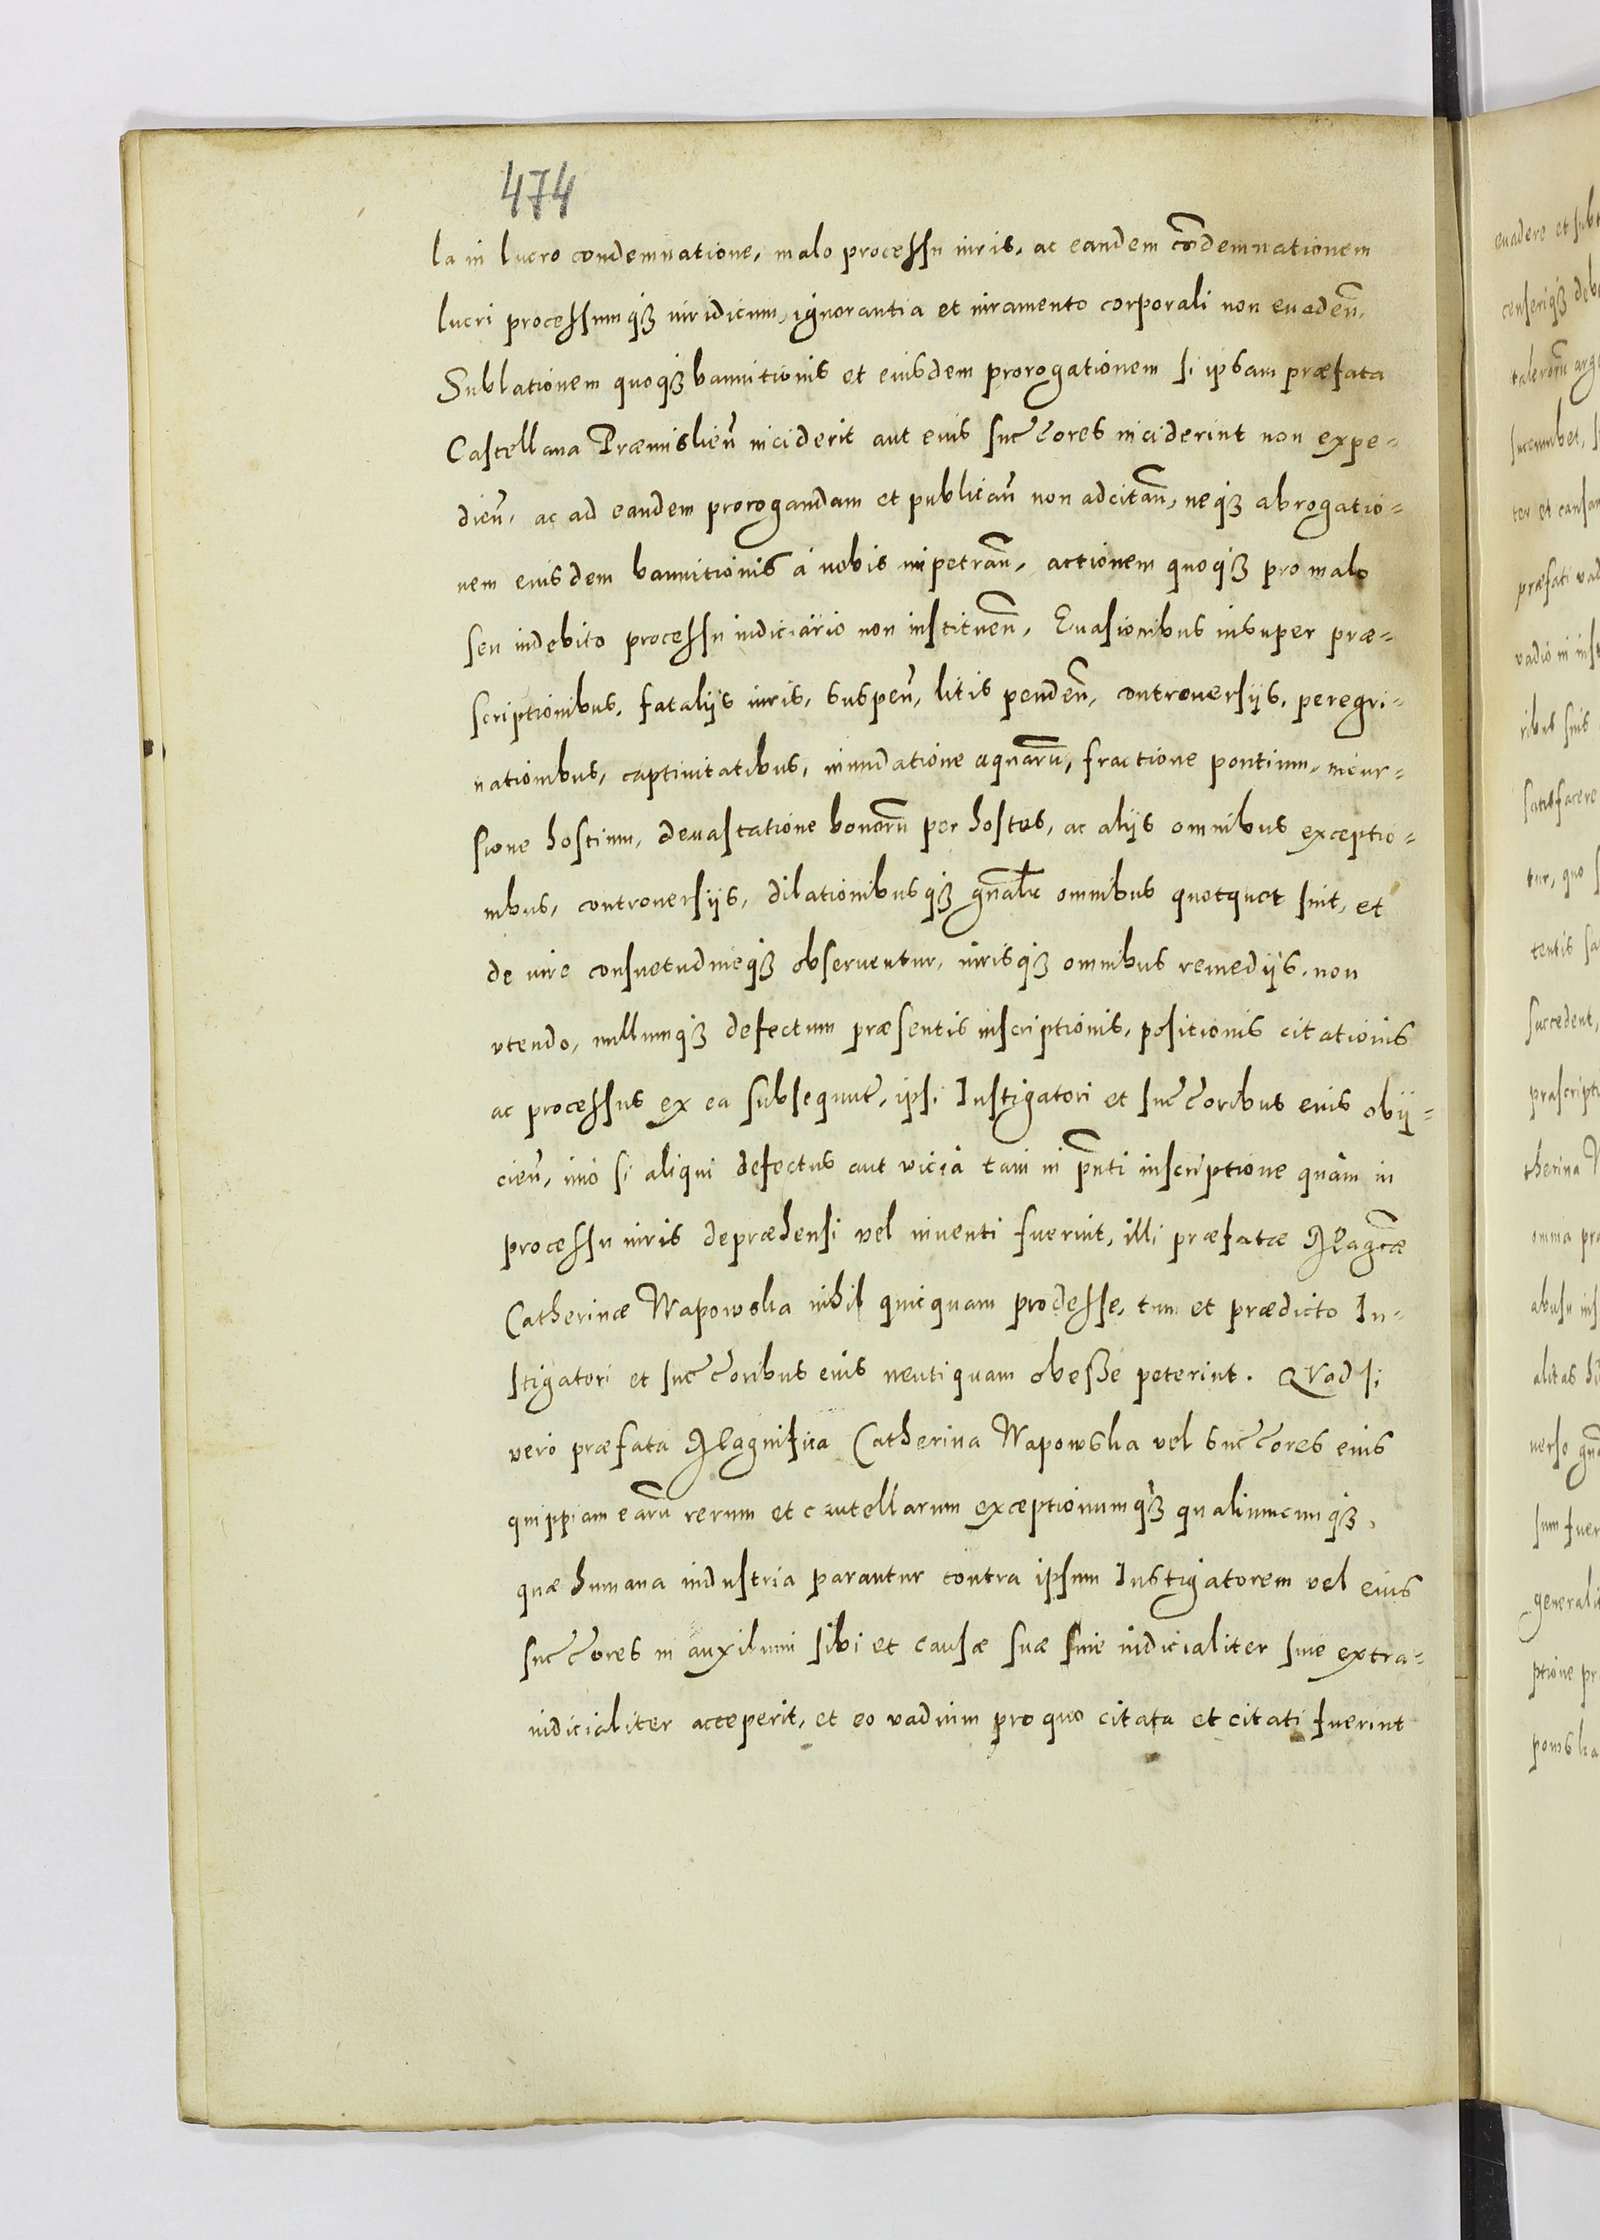 474
la in lucro condemnatione, malo processu iuris, ac eandem cōdemnationem
lucri processumq₃ iuridicum, ignorantia et iuramento corporali non euadeñ,
Sublationem quoq₃ bannitionis et eiusdem prorogationem si ipsam præfata
Castellana Præmislieñ inciderit aut eius succ̃ores inciderint non expe=
dieñ, ac ad eandem prorogandam et publicañ non adcitañ, neq₃ abrogatio=
nem eiusdem bannitionis à nobis impetrañ, actionem quoq₃ pro malo
seu indebito processu iudiciario non institueñ, Euasionibus insuper præ=
scriptionibus, fatalijs iuris, suspeñ, litis pendeñ, controuersijs, peregri=
nationibus, captiuitatibus, inundatione aquarũ, fractione pontium, incur=
sione hostium, deuastatione bonorũ per hostes, ac alijs omnibus exceptio=
nibus, controuersijs, dilationibusq₃ gñalr omnibus quotquot sint, et
de iure consuetudineq₃ obseruentur, iurisq₃ omnibus remedijs, non
vtendo, nullumq₃ defectum præsentis inscriptionis, positionis citationis
ac processus ex ea subsequut̃, ipsi Instigatori et succ̃oribus eius obij=
cieñ, imò si aliqui defectus aut vicia tam in p̃nti inscriptione quàm in
processu iuris depræhensi vel inuenti fuerint, illi præfatæ Magc̃æ
Catherinæ Wapowska nihil quicquam prodesse, tum et prædicto In=
stigatori et succ̃oribus eius neutiquam obesse poterint. QVod si
vero præfata Magnifica Catherina Wapowska vel succ̃ores eius
quippiam earũ rerum et cautellarum exceptionumq₃ qualiumcumq₃,
quæ humana industria parantur contra ipsum Instigatorem vel eius
succ̃ores in auxilium sibi et causæ suæ siue iudicialiter siue extra=
iudicialiter acceperit, et eo vadium pro quo citata et citati fuerint